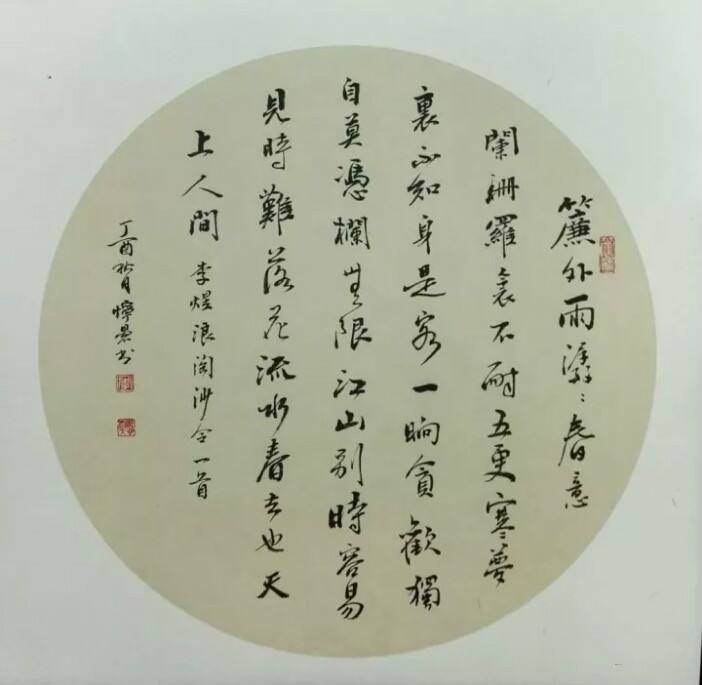 簾外雨潺〻春意
闌珊羅衾不耐五更寒夢
裏不知身是客一晌貪歡獨
自莫憑欄無限江山別時容易
見時難落花流水春去也天
上人間 李煜浪淘沙令一首
丁酉秋月 書